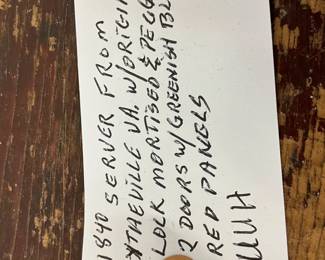 1840 SERVER FROM
YTHEVILLE VA. W/ORIGI
LOCK MORTISED & PEGG
2 DOORS W/ GREENISH BL
RED PANELS